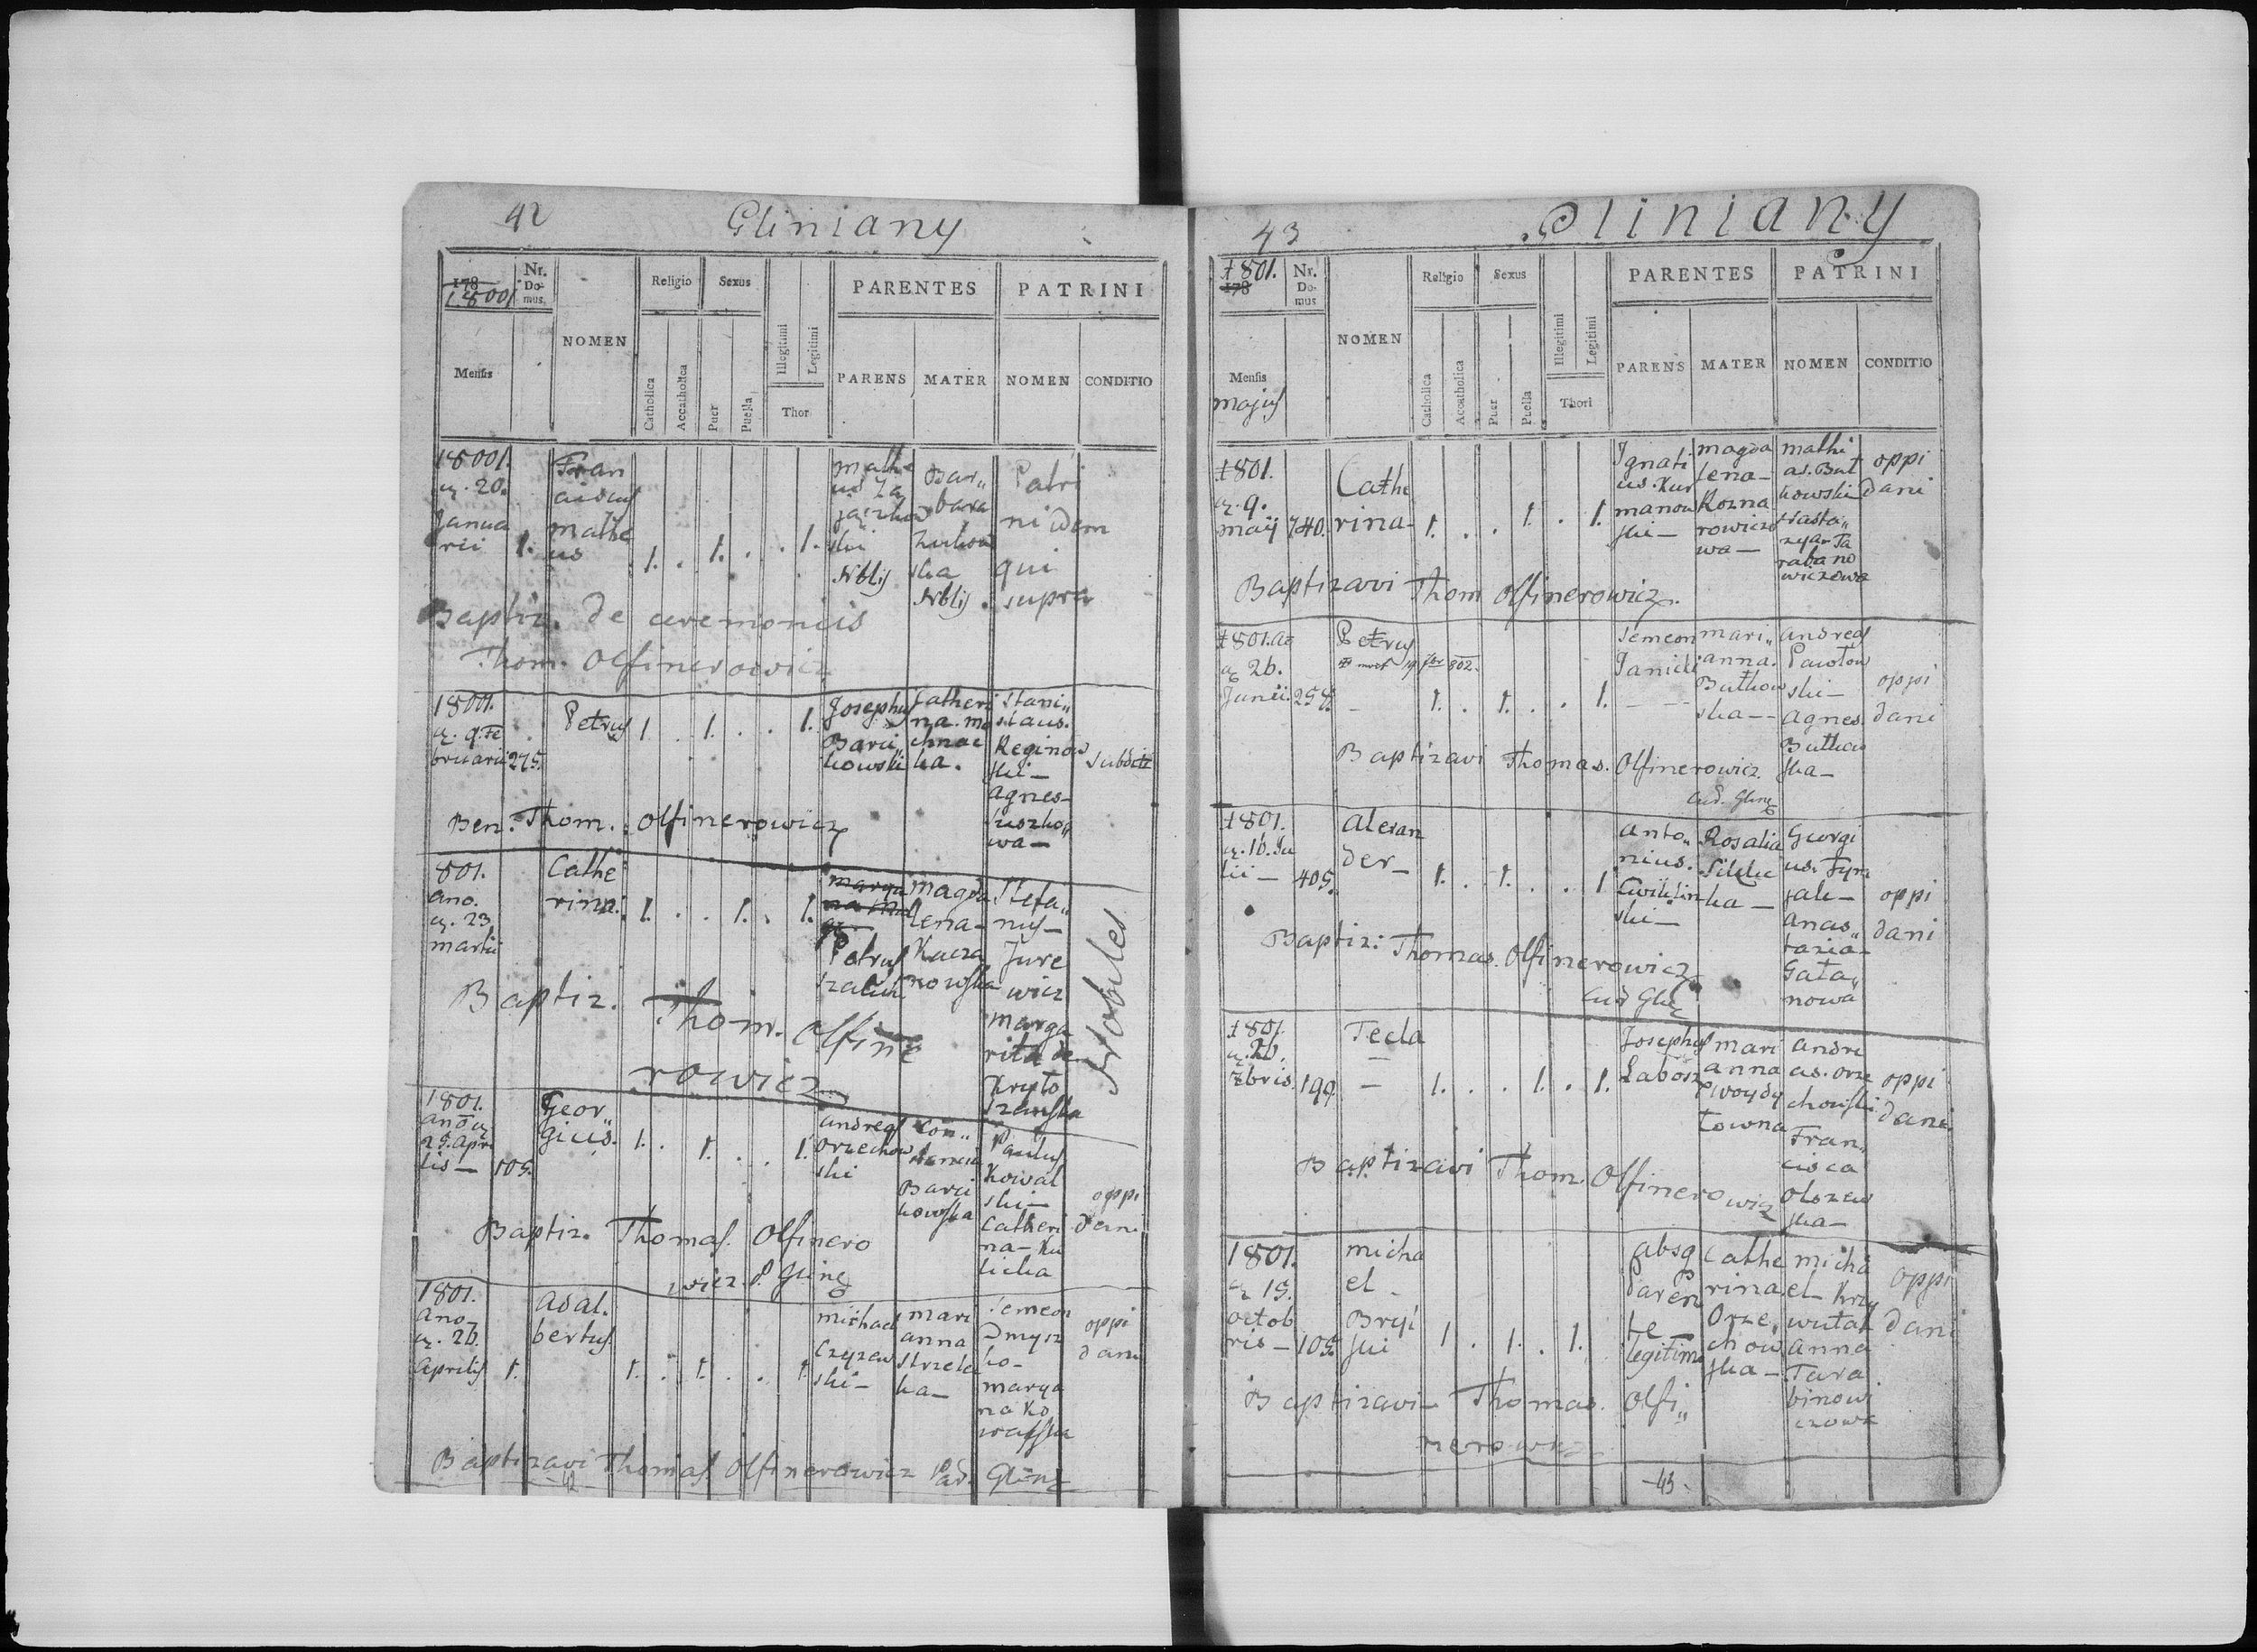 42
Gliniany
178
18001
Nr. Do- mus.
NOMEN
Religio
Sexus
PARENTES
PATRINI
Mensis
Catholica
Accatholica
Puer
Puella
Illegitimi
Legitimi
Thor
PARENS
MATER
NOMEN
CONDITIO
18001.
20.
Janua
rii
1.
Fran
ciscus
Mathe
us
1. . 1. . . 1.
Mathe
jaczkow
ski
Nblis
Bar„
bara
ska
Nblis
Patri
ni idem
qui
supra
Baptiz. de ceremoniis
Thom. Olfinerowicz
18001.
9. Fe
bruarii
275.
Petrus
1 . 1. . . 1.
Josephus
Barci„
kowski
Catheri
na. Mo
chnac
ka.
Stani„
slaus.
Reginow
ski—
Agnes—
wa—
Ben: Thom. Olfinerowicz
801.
ano.
23
martii
Cathe
rina.
1. . . 1. . 1.
Petrus
Magda
lena—
Kacza
nowska
Stefa„
nus—
Jure
wicz
Marga
rita de
Krzyto
Nobiles
Baptiz. Thom. Olfine
rowicz
1801.
ano
29. Apri
lis—
105.
Geor„
gius.
1. . 1. . . 1.
Andreas
Orzechow
ski
Con„
stancia
Barci
kowska
Paulus
Kowal
ski—
Catheri
na—Ku
licka
oppi
dani
Baptiz. Thomas. Olfinero
wicz. P. Glinę
1801.
ano—
26.
Aprilis
1.
Adal.
bertus
1. . 1. . . 1
Michael
Czyzew
ski—
Mari
anna
Strzele
ka—
Semeon
Dmysz
ko—
Marya
na Ko
walska
oppi
dani
Baptizavi Thomas Olfinerowicz Pad. Glinę
42
43
Gliniany
1801.
178
Nr. Do- mus
NOMEN
Religio
Sexus
PARENTES
PATRINI
Mensis
majus
Catholica
Accatholica
Puer
Puella
Illegitimi
Legitimi
Thori
PARENS
MATER
NOMEN
CONDITIO
1801.
9.
maij
740.
Cathe
rina—
1. . . 1. . 1.
Ignati
us. Kur
manow
ski—
Magda
lena—
Kozna
rowiczo
wa—
Mathi
as. But
kowski
Nasta„
zya—Ta
rabano
wiczowa
oppi
dani
Baptizavi Thom Olfinerowicz.
1801. ao
26.
Junii.
258.
Petrus
802.
1. . 1. . . 1.
Semeon
Janicki
Mari„
anna.
Butkow
ska—
Andreas
Pawlow
ski—
Agnes.
Butkow
ska—
oppi
dani
Baptizavi Thomas. Olfinerowicz.
1801.
16. Ju
lii—
405.
Alexan
der—
1. . 1. . . 1.
Anto„
nius.
ski—
Rosalia
ka—
Georgi
us.
Anas„
tazia—
Gala„
nowa
oppi
dani
Baptiz: Thomas. Olfinerowicz
1801.
20.
7bris.
199.
Tecla
1. . . 1. . 1.
Josephus
Mari
anna
towna
Andre
as. Orze
chowski
Fran„
cisca
Olszew
ska—
oppi
dani.
Baptizavi Thom. Olfinerowicz
1801.
15.
octob
ris—
105.
Micha
el—
ski
1 . 1. . 1.
absq
Paren
te
legitimo
Cathe
rina.
Orze„
chow
ska—
Micha
el—Krzy
Anna
Tara
binowi
czowa
oppi
dani
Baptizavi— Thomas. Olfi„
nerowicz
43.